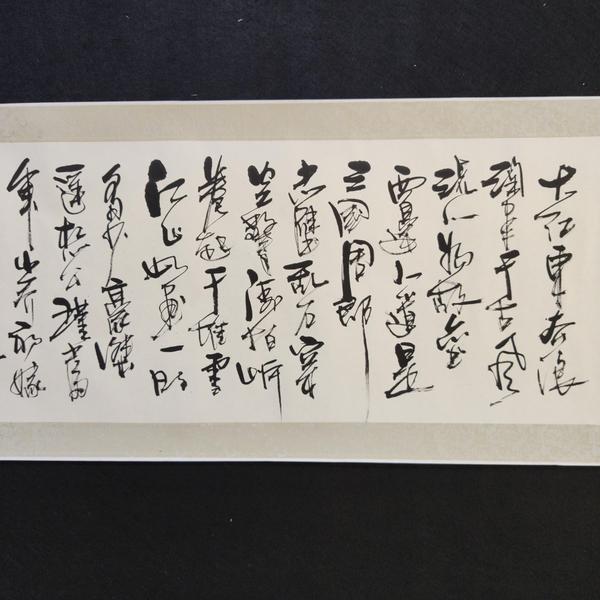 大江東去浪
淘尽千古風
流人物故壘
西邊人道是
三國周郎
赤壁乱石穿
空驚涛拍岸
卷起千堆雪
江山如畫一時
多少豪傑
遥想公瑾當
年小乔初嫁